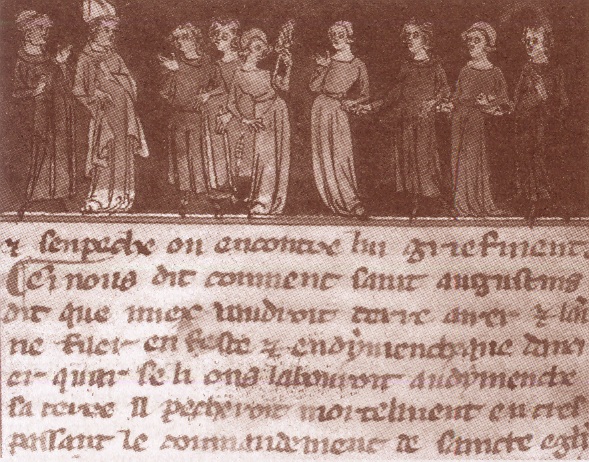 & senpeche on encontre lui griefment
Cei nous dit coument saint augustins
dit que miex vaudroit terre arer & lai
ne filer en feste & en dymenche que dan
er quar se li ons labouroit au dymenche
sa terre il pecheroit mortelment en tres
passant le commandement de saincte egli